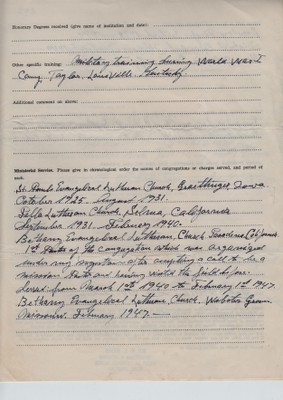 Honorary Degrees received (give name of institution and date):
Other specific training: Military training during World War I
Camp Taylor, Louisville, Kentucky.
Additional comment on above:
Ministerial Service. Please give in chronological order the names of congregations or charges served, and period of each.
St. Pauls Evangelical Lutheran Church, Graettinger Iowa.
October 1925. August 1931.
Lutheran Church, Selma, California
September 1931. February 1940.
Bethany Evangelical Lutheran Church Pasadena California.
1st Pastor of the congregation which was organized
under my after accepting a call to be a
mission and having visited the field before.
Served from March 1st 1940 to February 1st 1947
Bethany Evangelical Luth. Church, Webster Groves
Missouri. February 1947. —